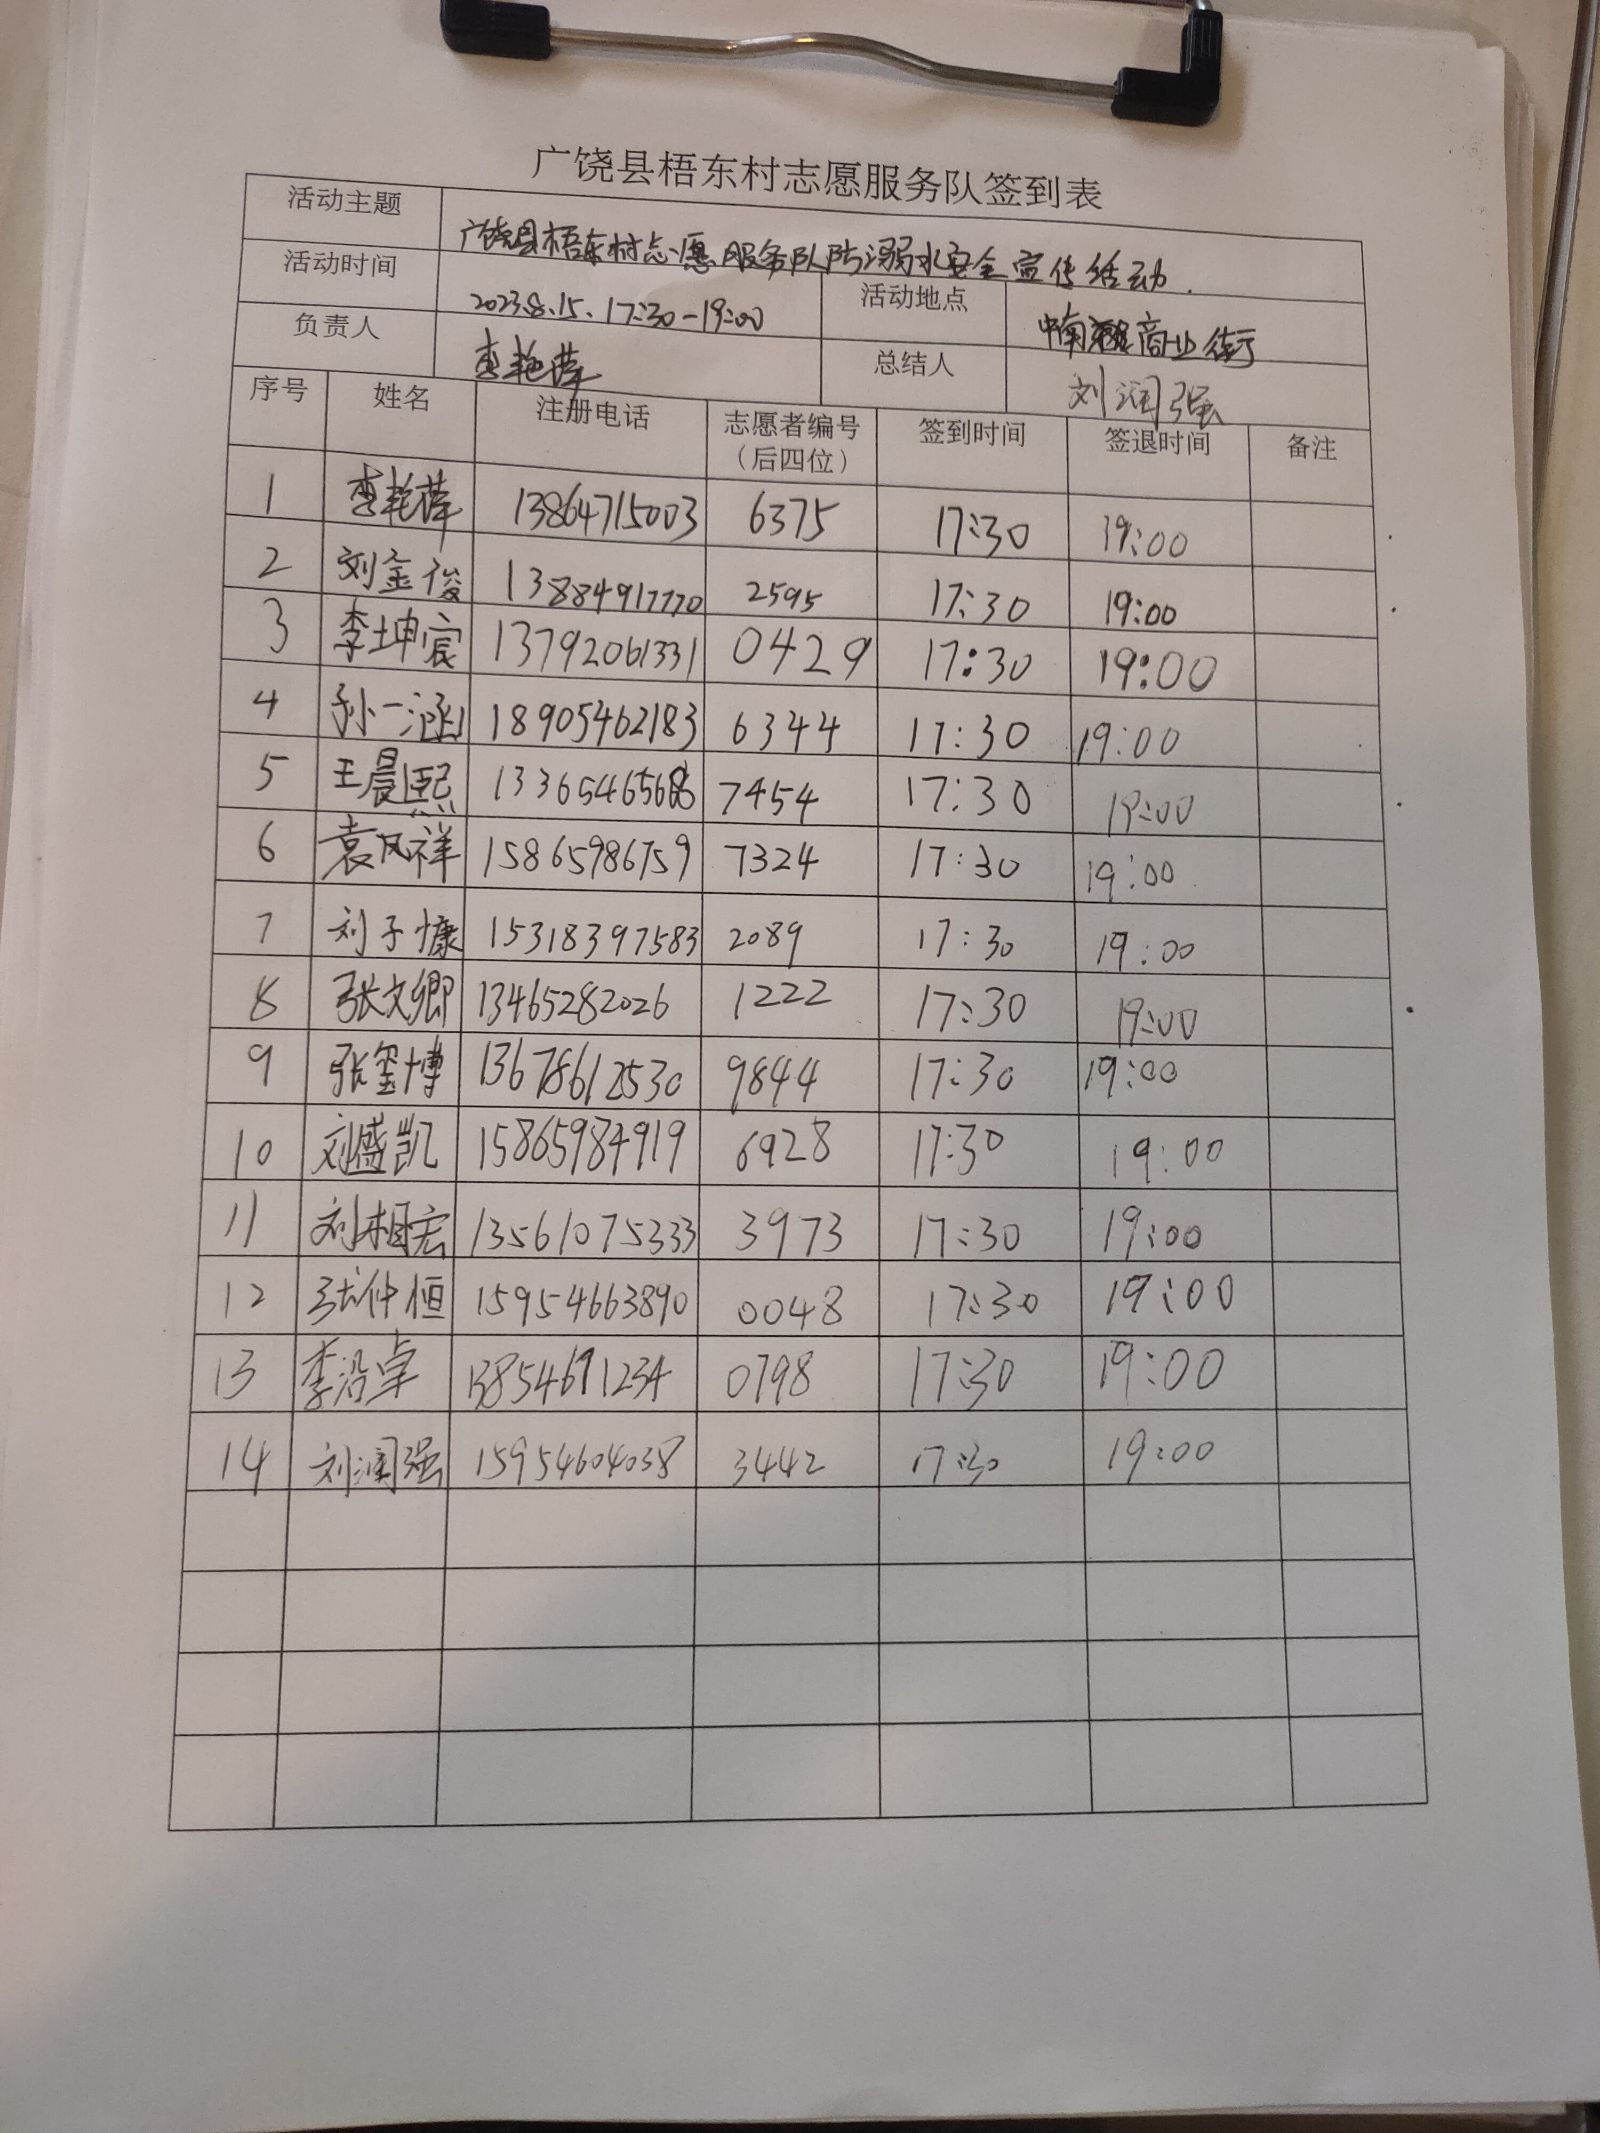 广饶县梧东村志愿服务队签到表
活动主题 广饶县梧东村志愿服务队防溺水安全宣传活动.
活动时间 2023.8.15. 17:30-19:00 活动地点 商业街
负责人 李艳萍 总结人 刘润强
序号 姓名 注册电话 志愿者编号（后四位） 签到时间 签退时间 备注
1 李艳萍 13864715003 6375 17:30 19:00
2 刘金俊 13884917770 2595 17:30 19:00
3 李坤宸 13792061331 0429 17:30 19:00
4 孙一涵 18905462183 6344 17:30 19:00
5 王晨熙 7454 17:30 19:00
6 袁凤祥 15865986759 7324 17:30 19:00
7 刘子慷 15318397583 2089 17:30 19:00
8 张文卿 13465282026 1222 17:30 19:00
9 张玺博 13678612530 9844 17:30 19:00
10 刘盛凯 15865984919 6928 17:30 19:00
11 刘相宏 13561075333 3973 17:30 19:00
12 张仲恒 15954663890 0048 17:30 19:00
13 李沿卓 13854691234 0798 17:30 19:00
14 刘润强 15954604038 3442 17:30 19:00